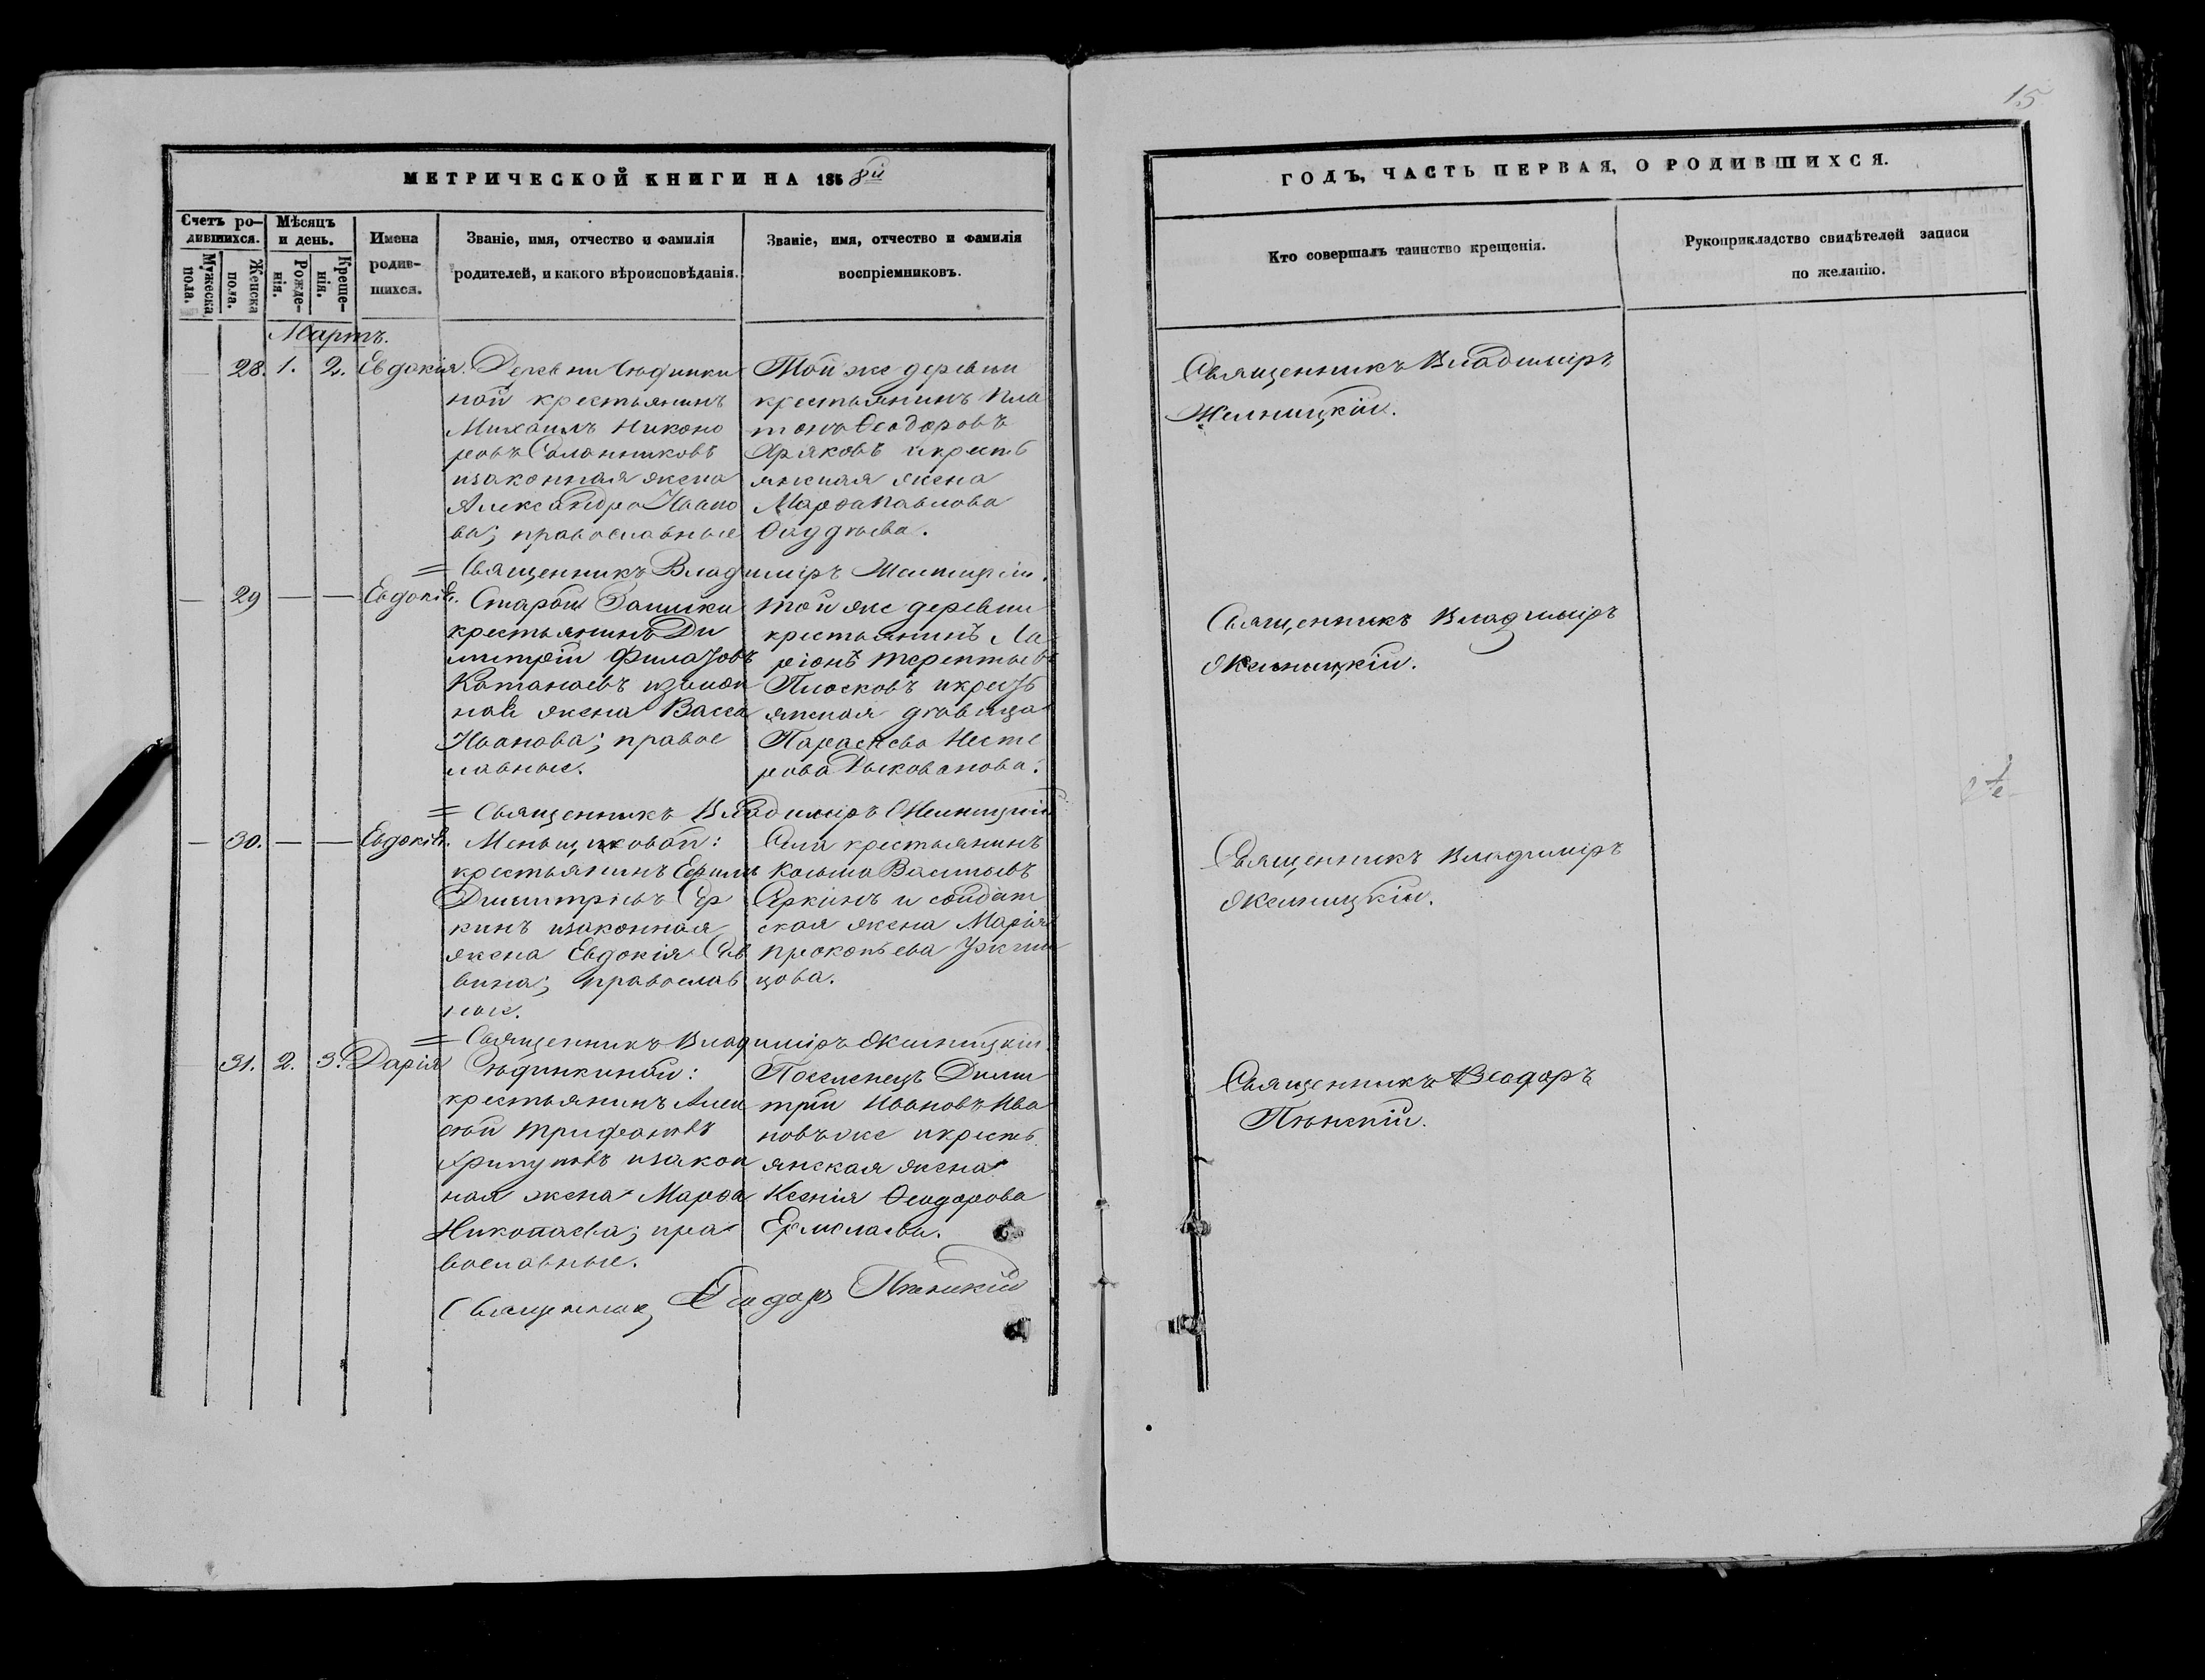 15
МЕТРИЧЕСКОЙ КНИГИ НА 1858й
ГОДЪ, ЧАСТЬ ПЕРВАЯ, О РОДИВШИХСЯ.
Счетъ ро-
дившихся.
Мужеска
пола.
Женска
пола.
Мѣсяцъ
и день.
Рожде-
нія.
Креще-
нія.
Имена
родив-
шихся.
Званіе, имя, отчество и фамилія
родителей, и какого вѣроисповѣданія.
Званіе, имя, отчество и фамилія
воспріемниковъ.
Кто совершалъ таинство крещенія.
Рукоприкладство свидѣтелей записи
по желанію.
Мартъ.
28. 1. 2. Евдокія.
Деревни Юдинки
ной крестьянинъ
Михаилъ Никоно
ровъ Саланниковъ
изаконная жена
Александра Ивано
ва; православные
Той же деревни
крестьянинъ Пла
тонъ Ѳеодоровъ
Хряковъ икресть
янская жена
Марѳа Павлова
Фаддѣева.
Священникъ Владиміръ
Желницкій.
= Священникъ Владиміръ Желницкій.
— 29 — — Евдокія.
Старой Заимки
крестьянинъ Ди
митрій Филатовъ
Катанаевъ изакон
ная жена Васса
Иванова; правос
лавные.
Той же деревни
крестьянинъ Ла
ріонъ Терентьевъ
Плосковъ икресть
янская дѣвица
Параскева Несте
рова
Священникъ Владиміръ
Желницкій.
= Священникъ Владиміръ Желницкій
— 30. — — Евдокія.
Меньщиковой:
крестьянинъ
Димитріевъ Ер
кинъ изаконная
жена Евдокія Сав
вина; православ
ные.
Села крестьянинъ
Косьма Васильевъ
Еркинъ и солдат
ская жена Марія
Прокопьева
цова.
Священникъ Владиміръ
Желницкій.
= Священникъ Владиміръ Желницкій.
31. 2. 3. Дарія
Юдинкиной:
крестьянинъ Алек
сѣй Трифановъ
Хрипуновъ изакон
ная жена Марѳа
Николаева; пра
вославные.
Поселенецъ Дими
трій Ивановъ Ива
новъ же икресть
янская жена
Ксенія Ѳеодорова
Ермолаева.
Священникъ Ѳеодоръ
Пѣнскій.
Священникъ Ѳеодоръ